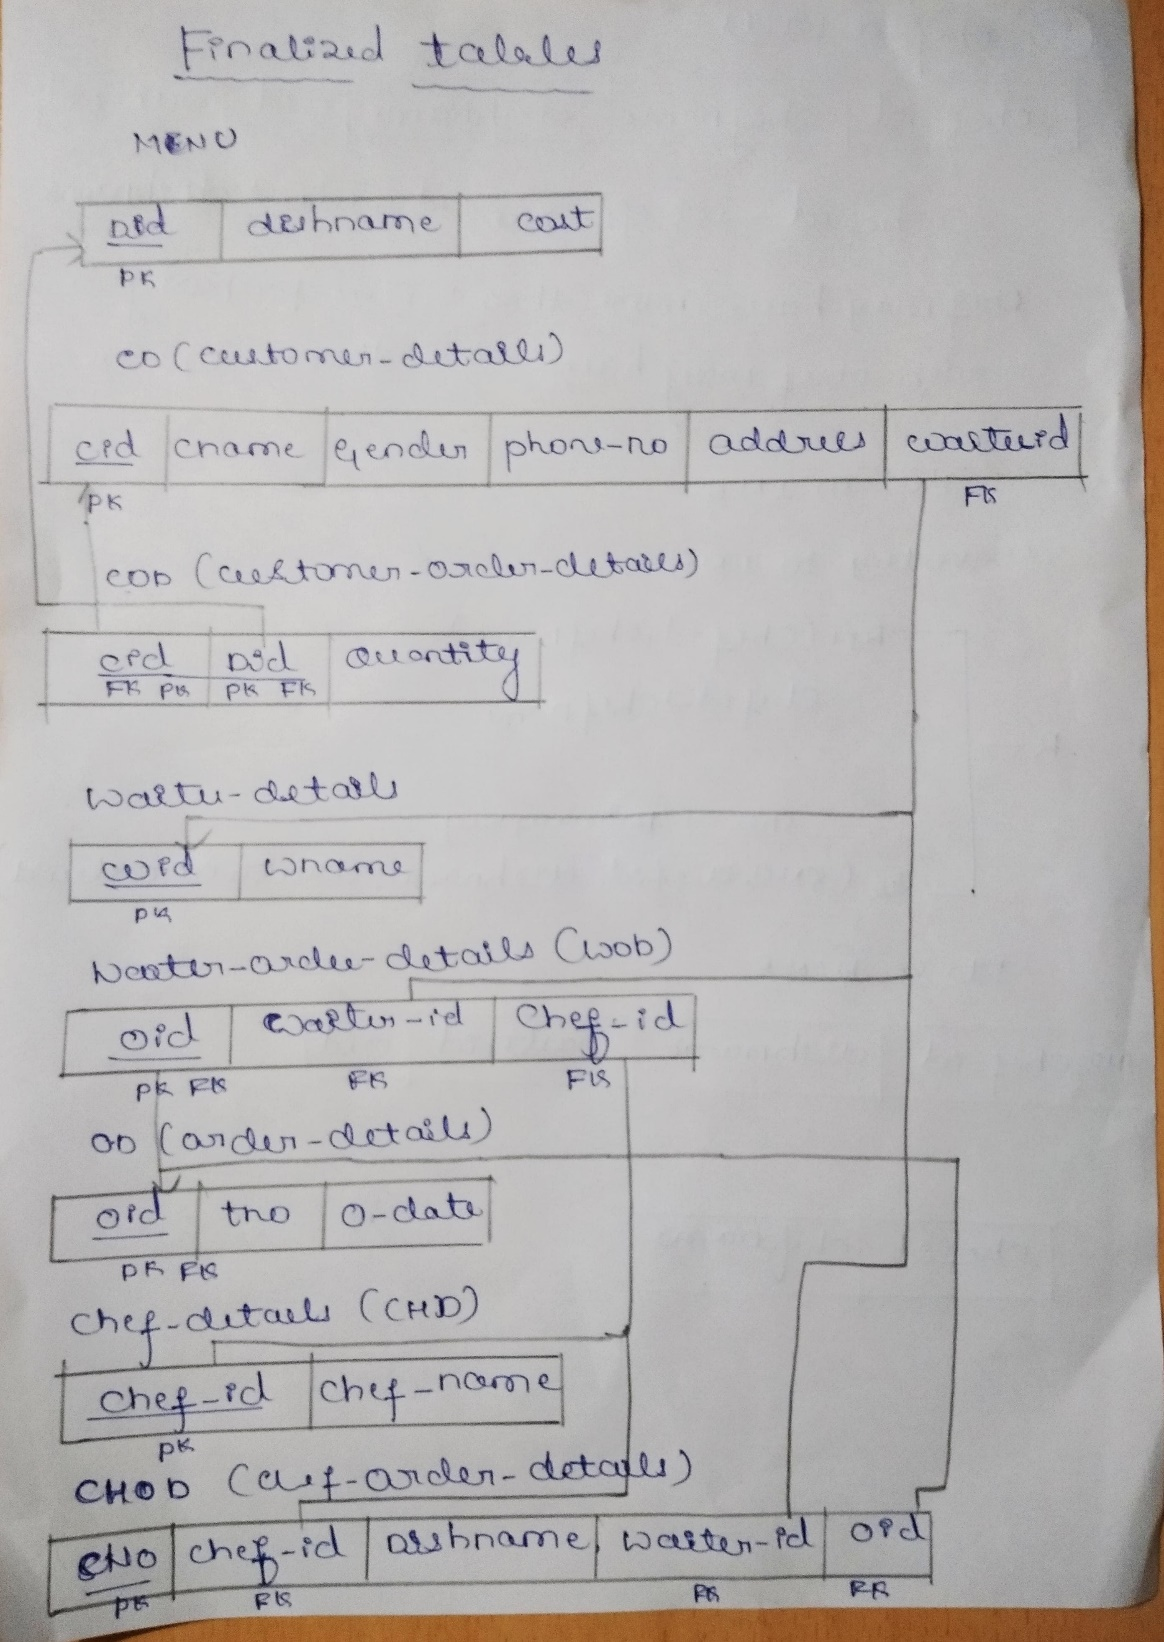 Finalized tables
MENU
Did dishname cost
PK
CD (customer-details)
cid cname Gender phone-no address waiterid
PK FK
COD (customer-order-details)
cid Did Quantity
FK PK PK FK
Waiter-details
wid wname
PK
Waiter-order-details (WOD)
oid waiter-id Chef-id
PK FK FK FK
OD (order-details)
oid tno o-date
PK FK
Chef-details (CHD)
Chef-id chef-name
PK
CHOD (chef-order-details)
CNO chef-id Dishname waiter-id oid
PK FK FK FK